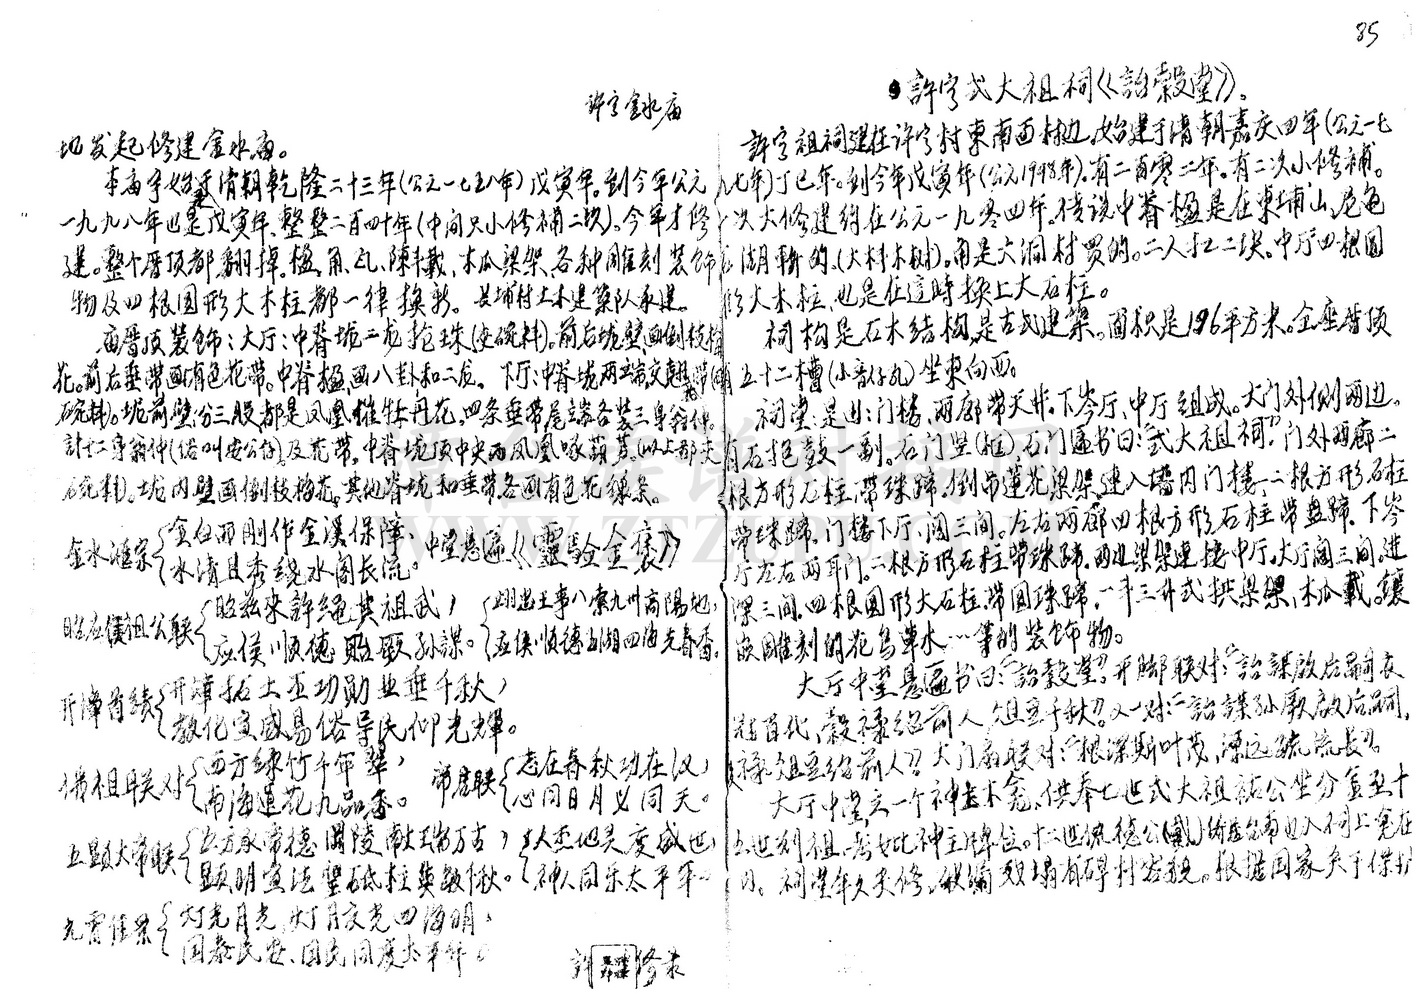 85
許宁金水庙
地发起修建金水庙。
本庙宇始于清朝乾隆二十三年(公元一七五八年)戊寅年。到今年公元
一九九八年也是戊寅年、整整二百四十年(中间只小修補二次)。今年才修
建。整个厝顶都翻掉。楹、角、瓦、陳斗載、木瓜梁架、各种困雕刻装飾
物及四根园形大木柱都一律换新。長埔村土木建築队承建。
庙厝顶装飾:大厅:中脊垅二龙抢珠(瓷碗料)。前后垅壁画倒枝梅
花。前后垂带画有色花带。中脊楹画八卦和二龙。下厅:中脊垅两端交趐带
碗料)。垅前壁分三股都是凤凰推牡丹花。四条垂带尾端各装三身翁仲。
計十二身翁仲(俗叫安公仔)及花带。中脊垅顶中央两凤凰啄葫芦。(以上都
碗料)。垅内壁画倒枝梅花。其他脊垅和垂带各画有色花線条。
金水滙宗 金白而刚作金漢保障、
水清且秀绕水阁长流。
中堂悬匾《靈驗金褒》
昭兹來許绳其祖武,
应侯順德貽厥孙謀。
开漳首绩 开漳拓土丕功勋业垂千秋,
教化宣威易俗导民仰光輝。
佛祖联对 西方绿竹千年翠,
南海莲花九品香。
帝君联 志在春秋功在汉,
心同日月义同天。
五顯大帝联
神人同乐太平年。
元霄佳景 灯光月光,灯月交光四海明。
国泰民安、国民同度太平年。
許 修录
許宁弍大祖祠《詒穀堂》。
許宁祖祠建在许宁村東南西村边。始建于清朝嘉庆四年(公元一七
九七年)丁巳年。到今年戊寅年(公元1998年)。有二百零二年。有二次小修補。
一次大修建约在公元一九零四年。传说中脊楹是在東埔山
湖斬的。(大村木树)。角是大洞村贯的。二人扛二块。中厅四根圆
形大木柱、也是在這時换上大石柱。
祠构是石木结构,是古式建築。面积是196平方米。全座厝顶
五十二槽(小音仔瓦)坐東向西。
祠堂:是由门楼、两廊带天井。下岺厅、中厅组成。大门外侧两边。
有石抱鼓一副。石门竖(框)石门匾书曰:"弍大祖祠"。门外两廊二
根方形石柱,带珠蹄。倒吊莲花梁架。建入墙内门楼、二根方形石柱
带珠蹄。门楼下厅、阔三间。左右两廊四根方形石柱带盘蹄。下岺
厅左右两耳门。二根方形石柱带珠蹄。两边梁架連接中厅。大厅阔三间。进
深三间。四根圆形大石柱、带圆珠蹄。一斗三升式拱梁架、木瓜載。鑲
嵌雕刻的花鸟草木…等的装飾物。
大厅中堂悬匾书曰:"詒穀堂"。开脚联对:"詒謀啟后嗣衣
冠百代,穀禄绍前人俎豆千秋"。又一对:"詒謀孙厥啟后嗣,
穀禄俎豆绍前人"。大门扇联对:"根深斯叶茂,源远疏流长"。
大厅中堂、立一个神主木龛、供奉七世弍大祖
列祖 考妣神主牌位。十二世
祠堂年久失修。 有碍村容貌。根据国家关于保护